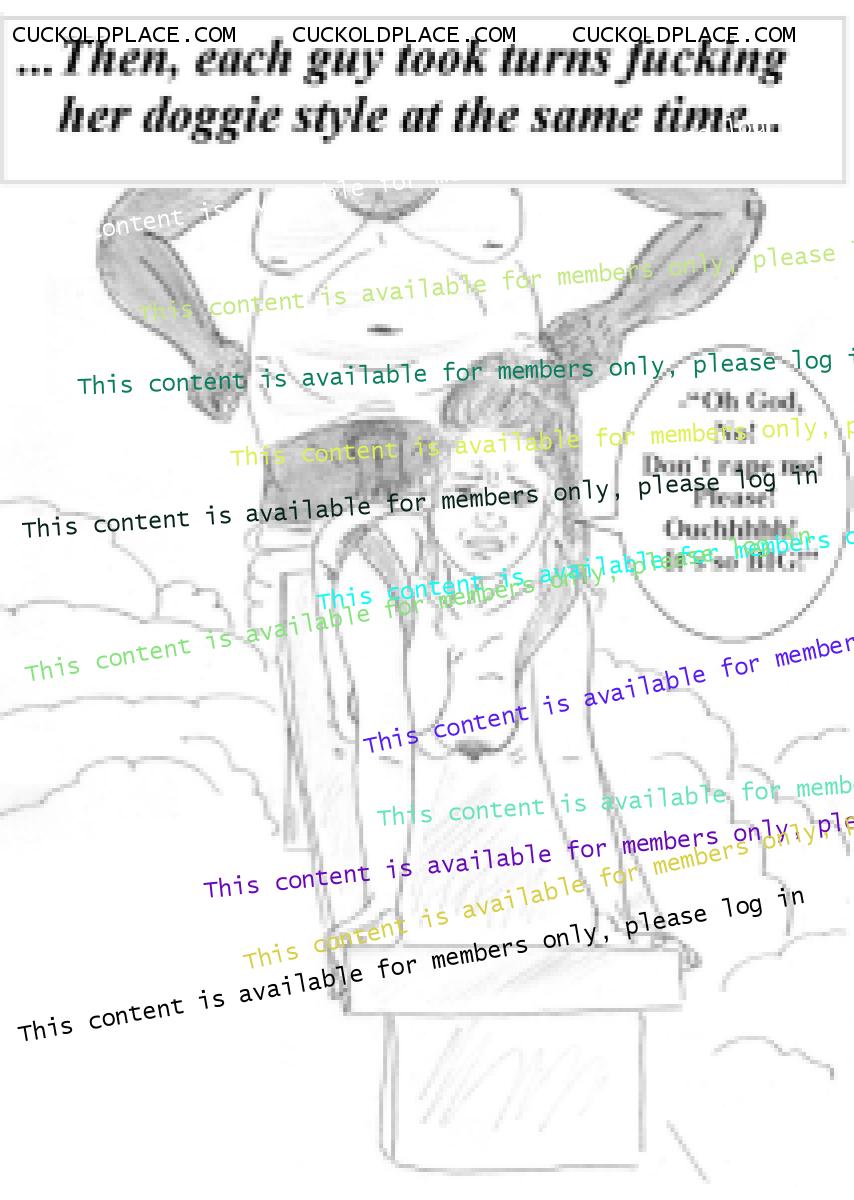 CUCKOLDPLACE.COM CUCKOLDPLACE.COM CUCKOLDPLACE.COM
...Then, each guy took turns fucking
her doggie style at the same time...
content is
This content is available for members only, please
This content is available for members only, please log
"Oh God,
This content is available for members only,
Don't rape me!
Please!
This content is available for members only, please log in
Ouchhhhh!
so BIG!"
This content is available for members
This content is available for members only, please log in
This content is available for member
This content is available for memb
This content is available for members only, ple
This content is available for members only,
This content is available for members only, please log in